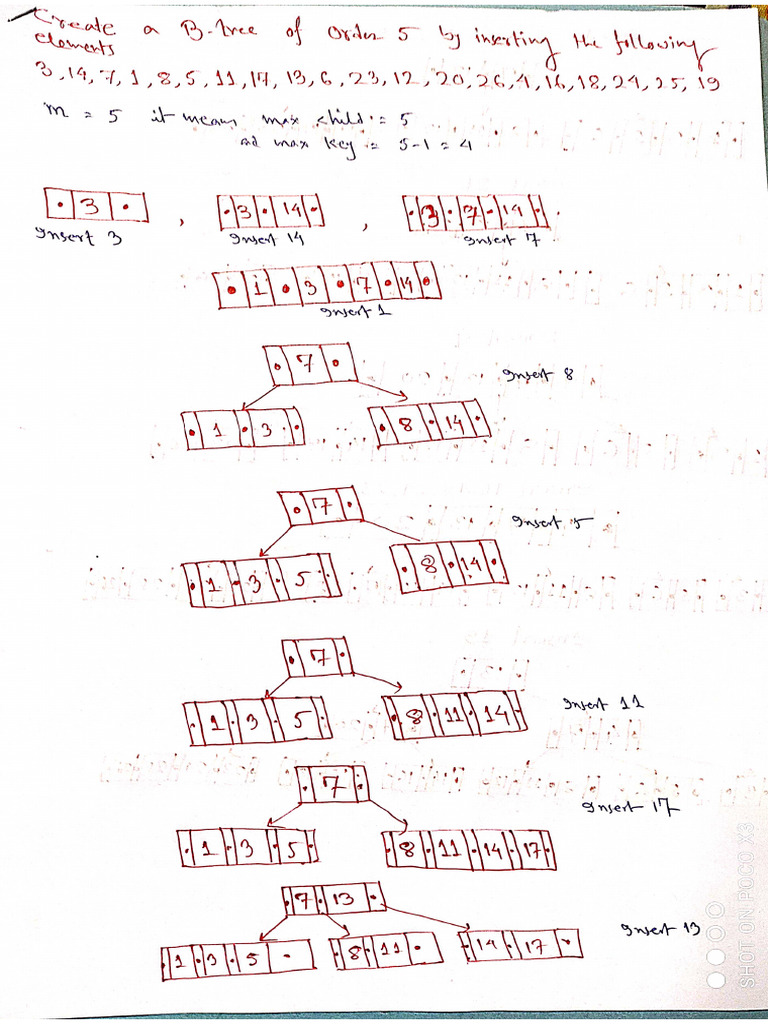 Create a B-tree of Order 5 by inserting the following
elements
3, 14, 7, 1, 8, 5, 11, 17, 13, 6, 23, 12, 20, 26, 4, 16, 18, 24, 25, 19
m = 5 it means max child = 5
and max key = 5-1 = 4
3 , 3 14 , 3 7 14
Insert 3 Insert 14 Insert 7
1 3 7 14
Insert 1
7 Insert 8
1 3 8 14
7 Insert 5
1 3 5 8 14
7
1 3 5 8 11 14 Insert 11
7 Insert 17
1 3 5 8 11 14 17
7 13 Insert 13
1 3 5 8 11 14 17
SHOT ON POCO X3